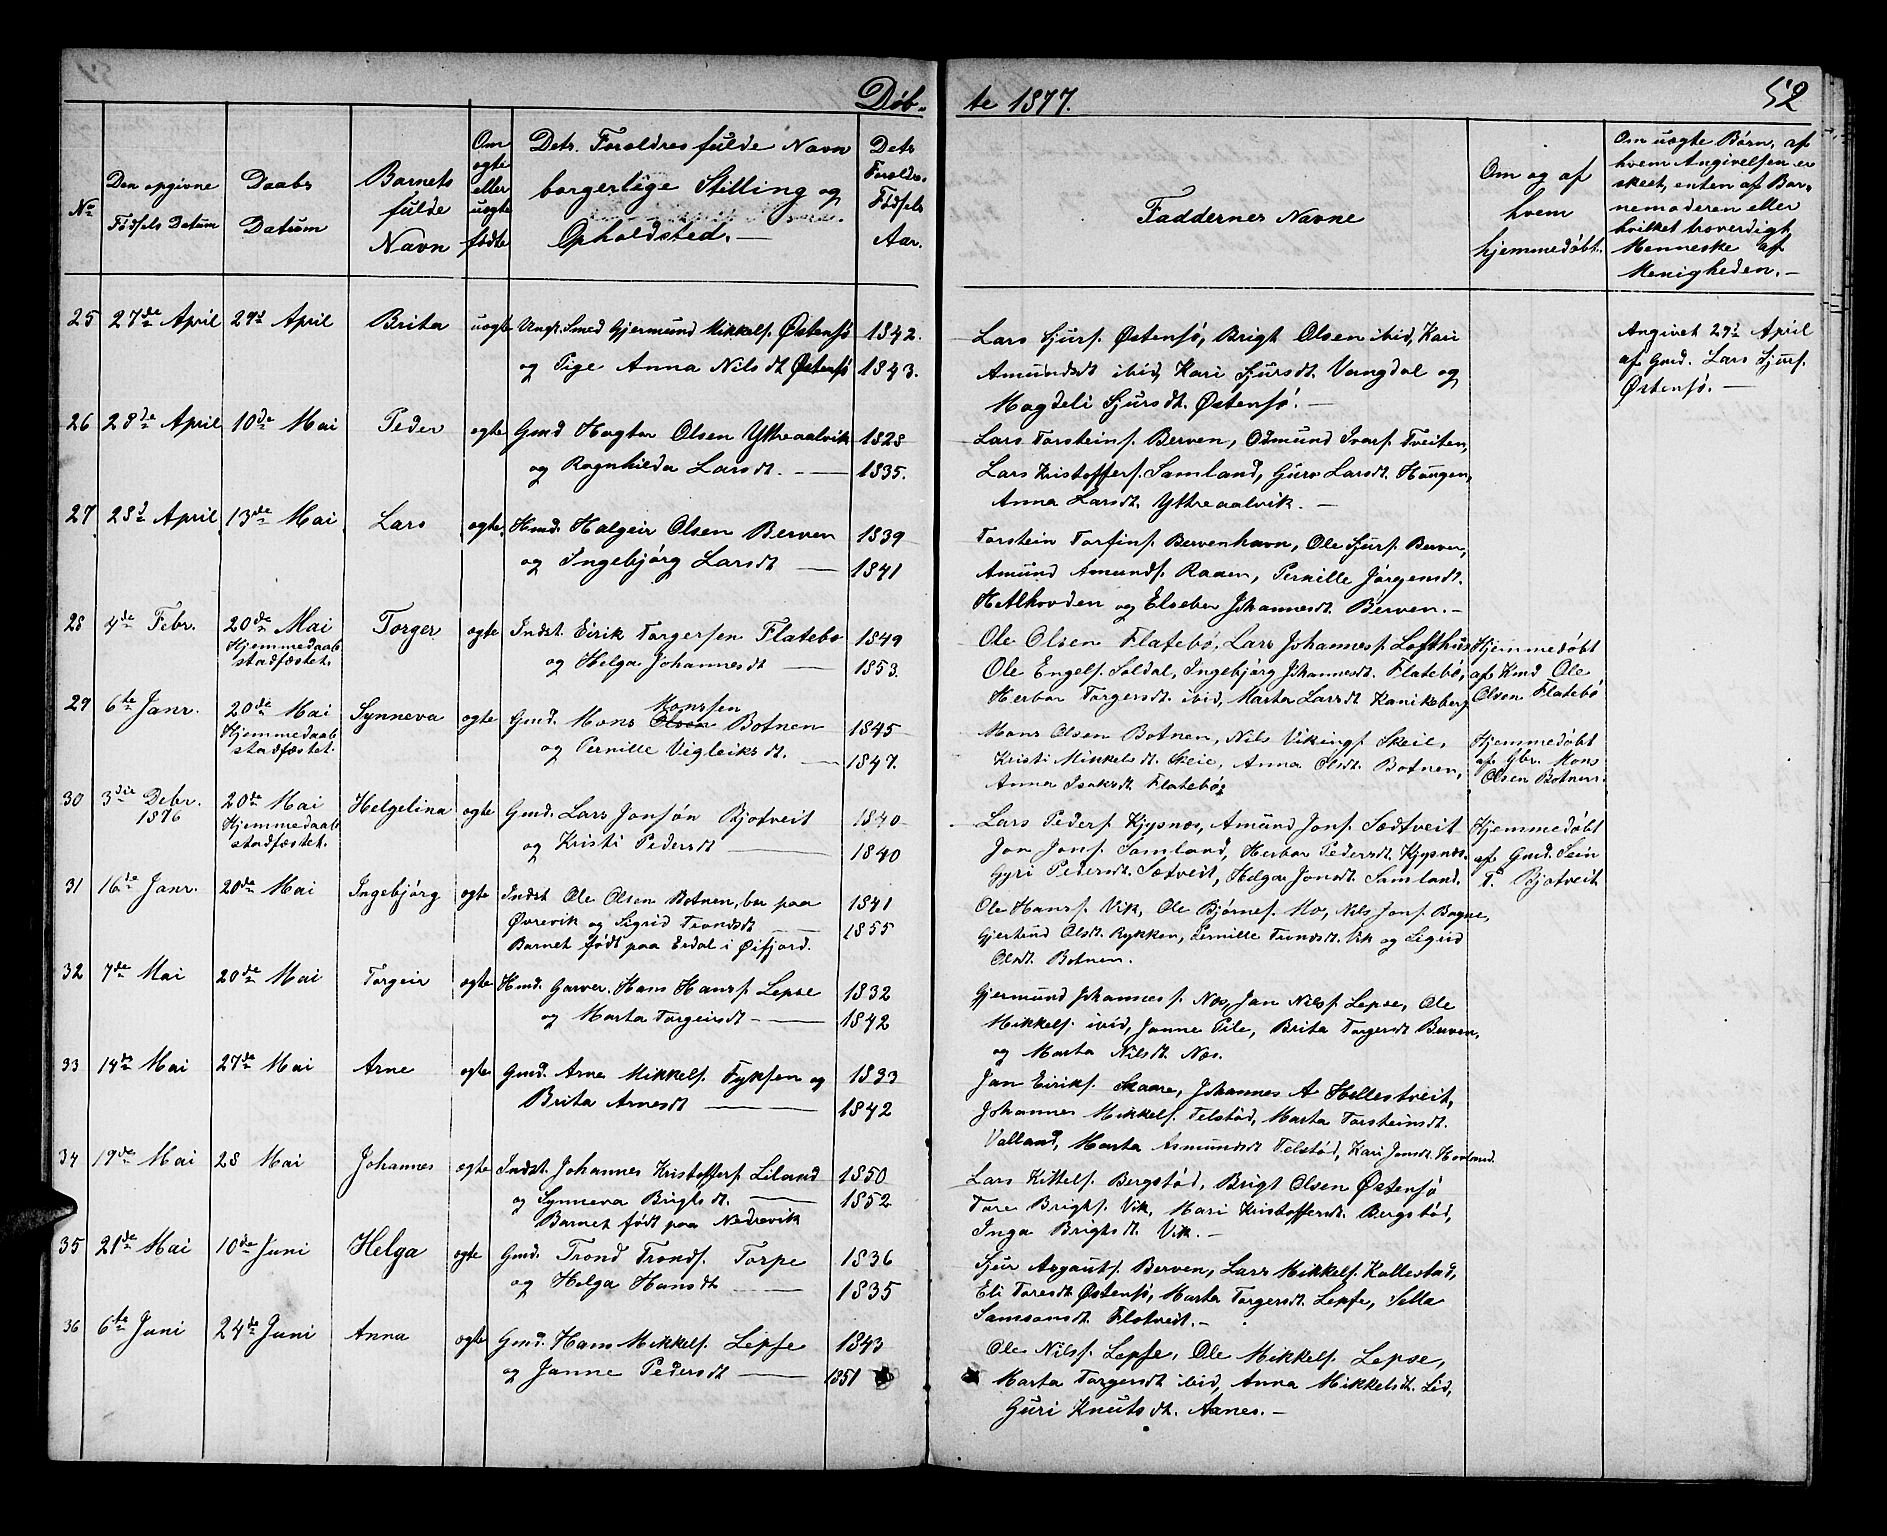 Døb-
te 1877.
52
No
Den opgivne
Fødsels Datum
Daabs
Datum
Barnets
fulde
Navn
Om
ægte
eller
uægte
fødte
Dets Forældres fulde Navn
borgerlige Stilling og
Opholdsted.
Dets
Foræld.
Fødsels
Aar.
Faddernes Navne
Om og af
hvem
hjemmedøbt.
Om uægte Børn, af
hvem Angivelsen er
skeet, enten af Bar-
nemoderen eller
hvilket troverdigt
Menneske af
Menigheden.
25 27de April 29d April Brita uægte Ungk. Smed Gjermund Mikkels. Østensø 1842.
og Pige Anna Nilsdt Østensø 1843.
Lars Sjurs. Østensø, Brigt Olsen ibid, Kari
Amundsdt ibid, Kari Sjursdt. Vangdal og
Magdeli Sjursdt. Østensø.
Angivet 29d April
af Gmd. Lars Sjurs.
Østensø.
26 28de April 10de Mai Peder ægte Gmd Hagtor Olsen Ytreaalvik 1828
og Ragnhilda Larsdt. 1835.
Lars Torsteins. Berven, Odmund Ivars. Tveiten,
Lars Kristoffers. Samland, Guro Larsdt. Haugen,
Anna Larsdt. Yttreaalvik.
27 28d April 13de Mai Lars ægte Hmd. Halgeir Olsen Berven 1839
og Ingebjørg Larsdt 1841
Torstein Torfins. Bervenhavn, Ole Sjurs. Berven,
Amund Amunds. Raaen, Pernille Jørgensdt.
Hetlhovden og Elseber Johannesdt. Berven.
28 4de Febr. 20de Mai Torger ægte Indst. Eirik Torgersen Flatebø 1849
Hjemmedaab
stadfæstet.
og Helga Johannesdt 1853.
Ole Olsen Flatebø, Lars Johannes. Lofthus
Ole Engels. Soldal, Ingebjørg Johannesdt. Flatebø,
Herbor Torgersdt. ibid, Marta Larsdt Kanikeberg
Hjemmedøbt
af Kmd Ole
Olsen Flatebø
29 6te Janr. 20de Mai Synneva ægte Gmd. Mons Olsen Monssen Botnen 1845
Hjemmedaab
stadfæstet.
og Pernille Vigleiksdt. 1847.
Mons Olsen Botnen, Nils Vikings. Skeie,
Kristi Mikkelsdt. Skeie, Anna Olsdt. Botnen,
Anna Isaksdt. Flatebø,
Hjemmedøbt
af Gbr. Mons
Olsen Botnen.
30 3die Debr. 20de Mai Helgelina ægte Gmd. Lars Jonsøn Bjotveit 1840
1876
Hjemmedaab
stadfæstet.
og Kristi Pedersdt 1840
Lars Peders. Kjysnæs, Amund Jons. Sætveit
Jon Jons. Samland, Herbor Pedersdt. Kjysnæs.
Gyri Pedersdt. Sætveit, Helga Jonsdt. Samland.
Hjemmedøbt
af Gmd. Sein
T. Bjotveit
31 16de Janr. 20de Mai Ingebjørg ægte Indst Ole Olsen Botnen, bor paa 1841
Øvrevik og Sigrid Trondsdt 1855
Barnet født paa Erdal i Øifjord.
Ole Hans. Vik, Ole Bjørnes. Mo, Nils Jons. Bagne,
Gjertrud Olsdt. Rykken, Pernille Trondsdt. Vik og Sigrid
Olsdt Botnen.
32 7de Mai 20de Mai Torgeir ægte Hmd. Garver. Hans Hans. Lepse 1832
og Marta Torgeirsdt 1842
Gjermund Johannes s. Næs, Jan Nils. Lepse, Ole
Mikkels. ibid, Janne Pile, Brita Torgersdt Berven,
og Marta Nilsdt Næs.
33 14de Mai 27de Mai Arne ægte Gmd. Arne Mikkels. Fyksen og 1833
Brita Arnesdt 1842
Jan Eiriks. Skaare, Johannes A Hellestveit,
Johannes Mikkels. Telstød, Marta Torsteinsdt.
Valland, Marta Asmundsdt Telstød, Kari Jonsdt. Hovland.
34 19de Mai 28 Mai Johannes ægte Indst. Johannes Kristoffers. Liland 1850
og Synneva Brigtsdt. 1852
Barnet født paa Nedrevik
Lars Kittels. Bergstød, Brigt Olsen Østensø
Tore Brigts. Vik, Mari Kristoffersdt. Bergstød,
Inga Brigtsdt. Vik.
35 21de Mai 10de Juni Helga ægte Gmd. Trond Tronds. Torpe 1836
og Helga Hansdt 1835
Sjur Asgauts. Berven, Lars Mikkels. Kallestad,
Eli Toresdt Østensø, Marta Torgersdt. Lepse, Sella
Samsonsdt. Flotveit.
36 6te Juni 24de Juni Anna ægte Gmd. Hans Mikkels. Lepse 1843
og Janne Pedersdt 1851
Ole Nils. Lepse, Ole Mikkels. Lepse,
Marta Torgersdt ibid, Anna Mikkelsdt. Lid,
Guri Knutsdt. Aanes.